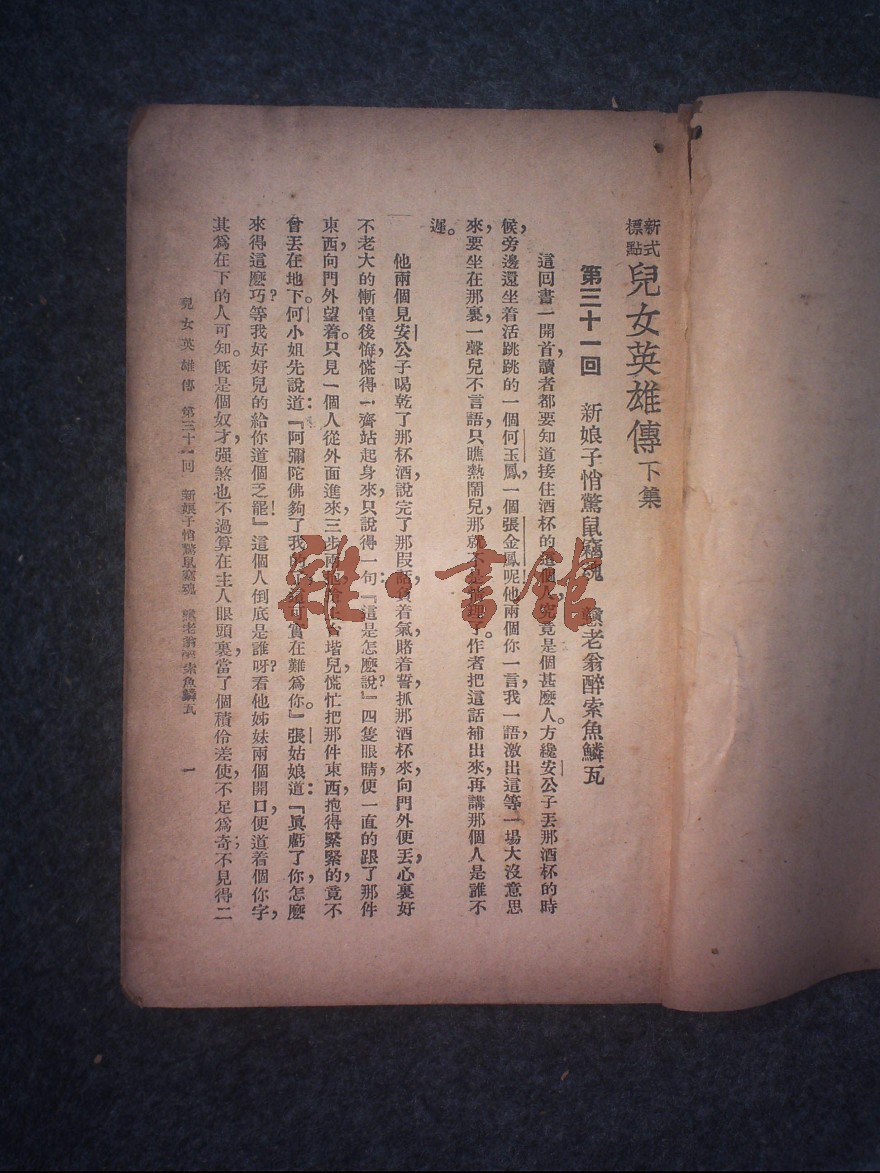 新式標點 兒女英雄傳 下集
第三十一回 新娘子悄驚鼠竊魂 戇老翁醉索魚鱗瓦
這回書一開首，讀者都要知道接住酒杯的這個人，究竟是個甚麼人。方纔安公子丟那酒杯的時
候，旁邊還坐着活跳跳的一個何玉鳳，一個張金鳳呢，他兩個你一言，我一語，激出這等一場大沒意思
來，要坐在那裏，一聲兒不言語，只瞧熱鬧兒，那就不是情理了。作者把這話補出來，再講那個人是誰不
遲。
他兩個見安公子喝乾了那杯酒，說完了那段話，負着氣，賭着誓，抓那酒杯來，向門外便丟，心裏好
不老大的慚惶後悔，慌得一齊站起身來，只說得一句：『這是怎麼說？』四隻眼睛，便一直的跟了那件
東西，向門外望着。只見一個人從外面進來，三步兩 台堦兒，慌忙把那件東西，抱得緊緊的，竟不
曾丟在地下。何小姐先說道：『阿彌陀佛夠了我的了，這可實在難為你。』張姑娘道：『真虧了你，怎麼
來得這麼巧？等我好好兒的給你道個乏罷！』這個人倒底是誰呀？看他姊妹兩個開口，便道着個你字，
其為在下的人可知。既是個奴才，强煞也不過算在主人眼頭裏，當了個積伶差使，不足為奇；不見得二
兒女英雄傳 第三十一回 新娘子悄驚鼠竊魂 戇老翁醉索魚鱗瓦 一
雜·書館